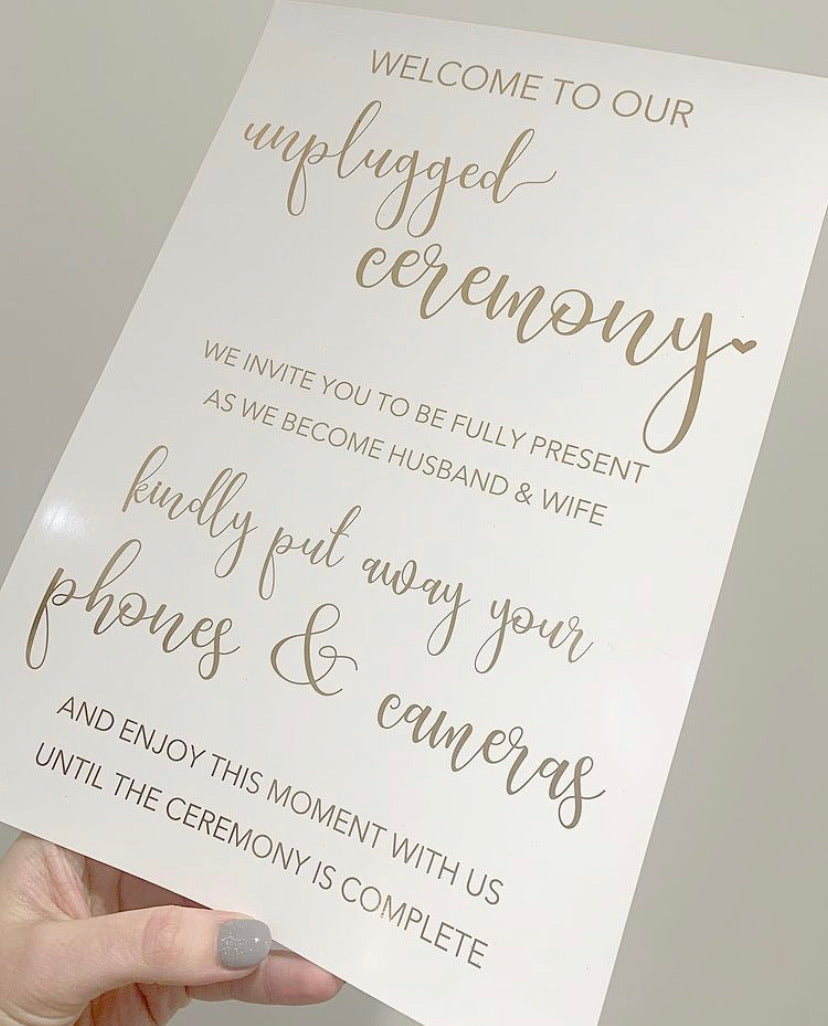 WELCOME TO OUR
unplugged
ceremony
WE INVITE YOU TO BE FULLY PRESENT
AS WE BECOME HUSBAND & WIFE
kindly put away your
phones & cameras
AND ENJOY THIS MOMENT WITH US
UNTIL THE CEREMONY IS COMPLETE